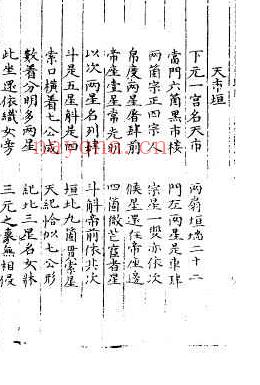 天市垣
下元一宮名天市 兩扇垣墻二十二
當門六箇黑市樓 門左兩星是車肆
兩箇宗正四宗人 宗星一雙亦依次
帛度兩星屠肆前 候星還在帝座邊
帝座一星常光明 四箇微茫宦者星
以次兩星名列肆 斗斛帝前依其次
斗是五星斛是四 垣北九箇貫索星
索口橫著七公成 天紀恰似七公形
數着分明多兩星 紀北三星名女牀
此坐還依織女旁 三元之象無相侵
nayona.cn